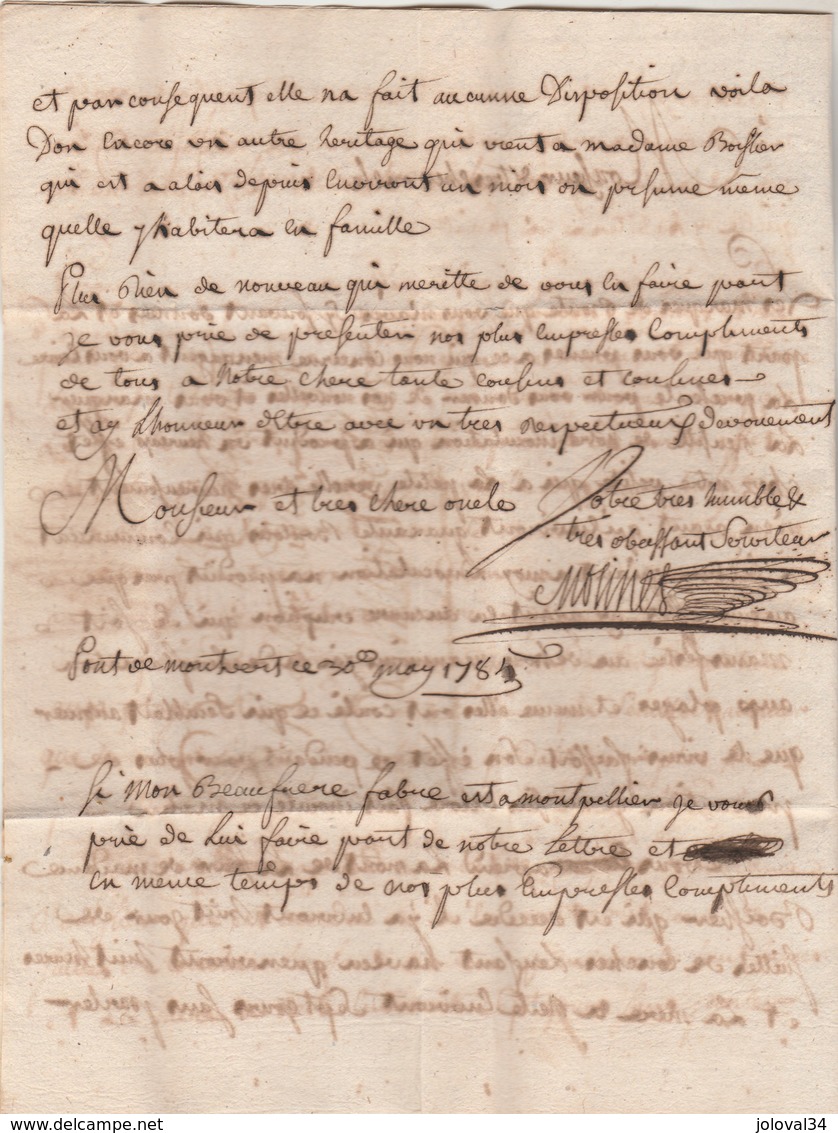 et par consequent elle na fait aucunne Disposition voila
Don Encore un autre heritage qui vient a madame Boissier
qui est a alais depuis Environt un mois on presume même
quelle y habitera en famille
Plus Rien de nouveau qui meritte de vous En faire part
je vous prie de presenter nos plus Empressés Compliments
de tous a Notre chere tante cousins et cousines
et ay Lhonneur dEtre avec un tres Respectueux devouement
Monsieur et tres chere oncle Votre tres humble &
tres obeissant Serviteur
Molines
Pont de montvert ce 30e may 1784
Si mon Beaufrere fabre est a montpellier je vous
prie de Lui faire part de notre Lettre et
en meme temps de nos plus Empressés Compliments
www.delcampe.net
joloval34